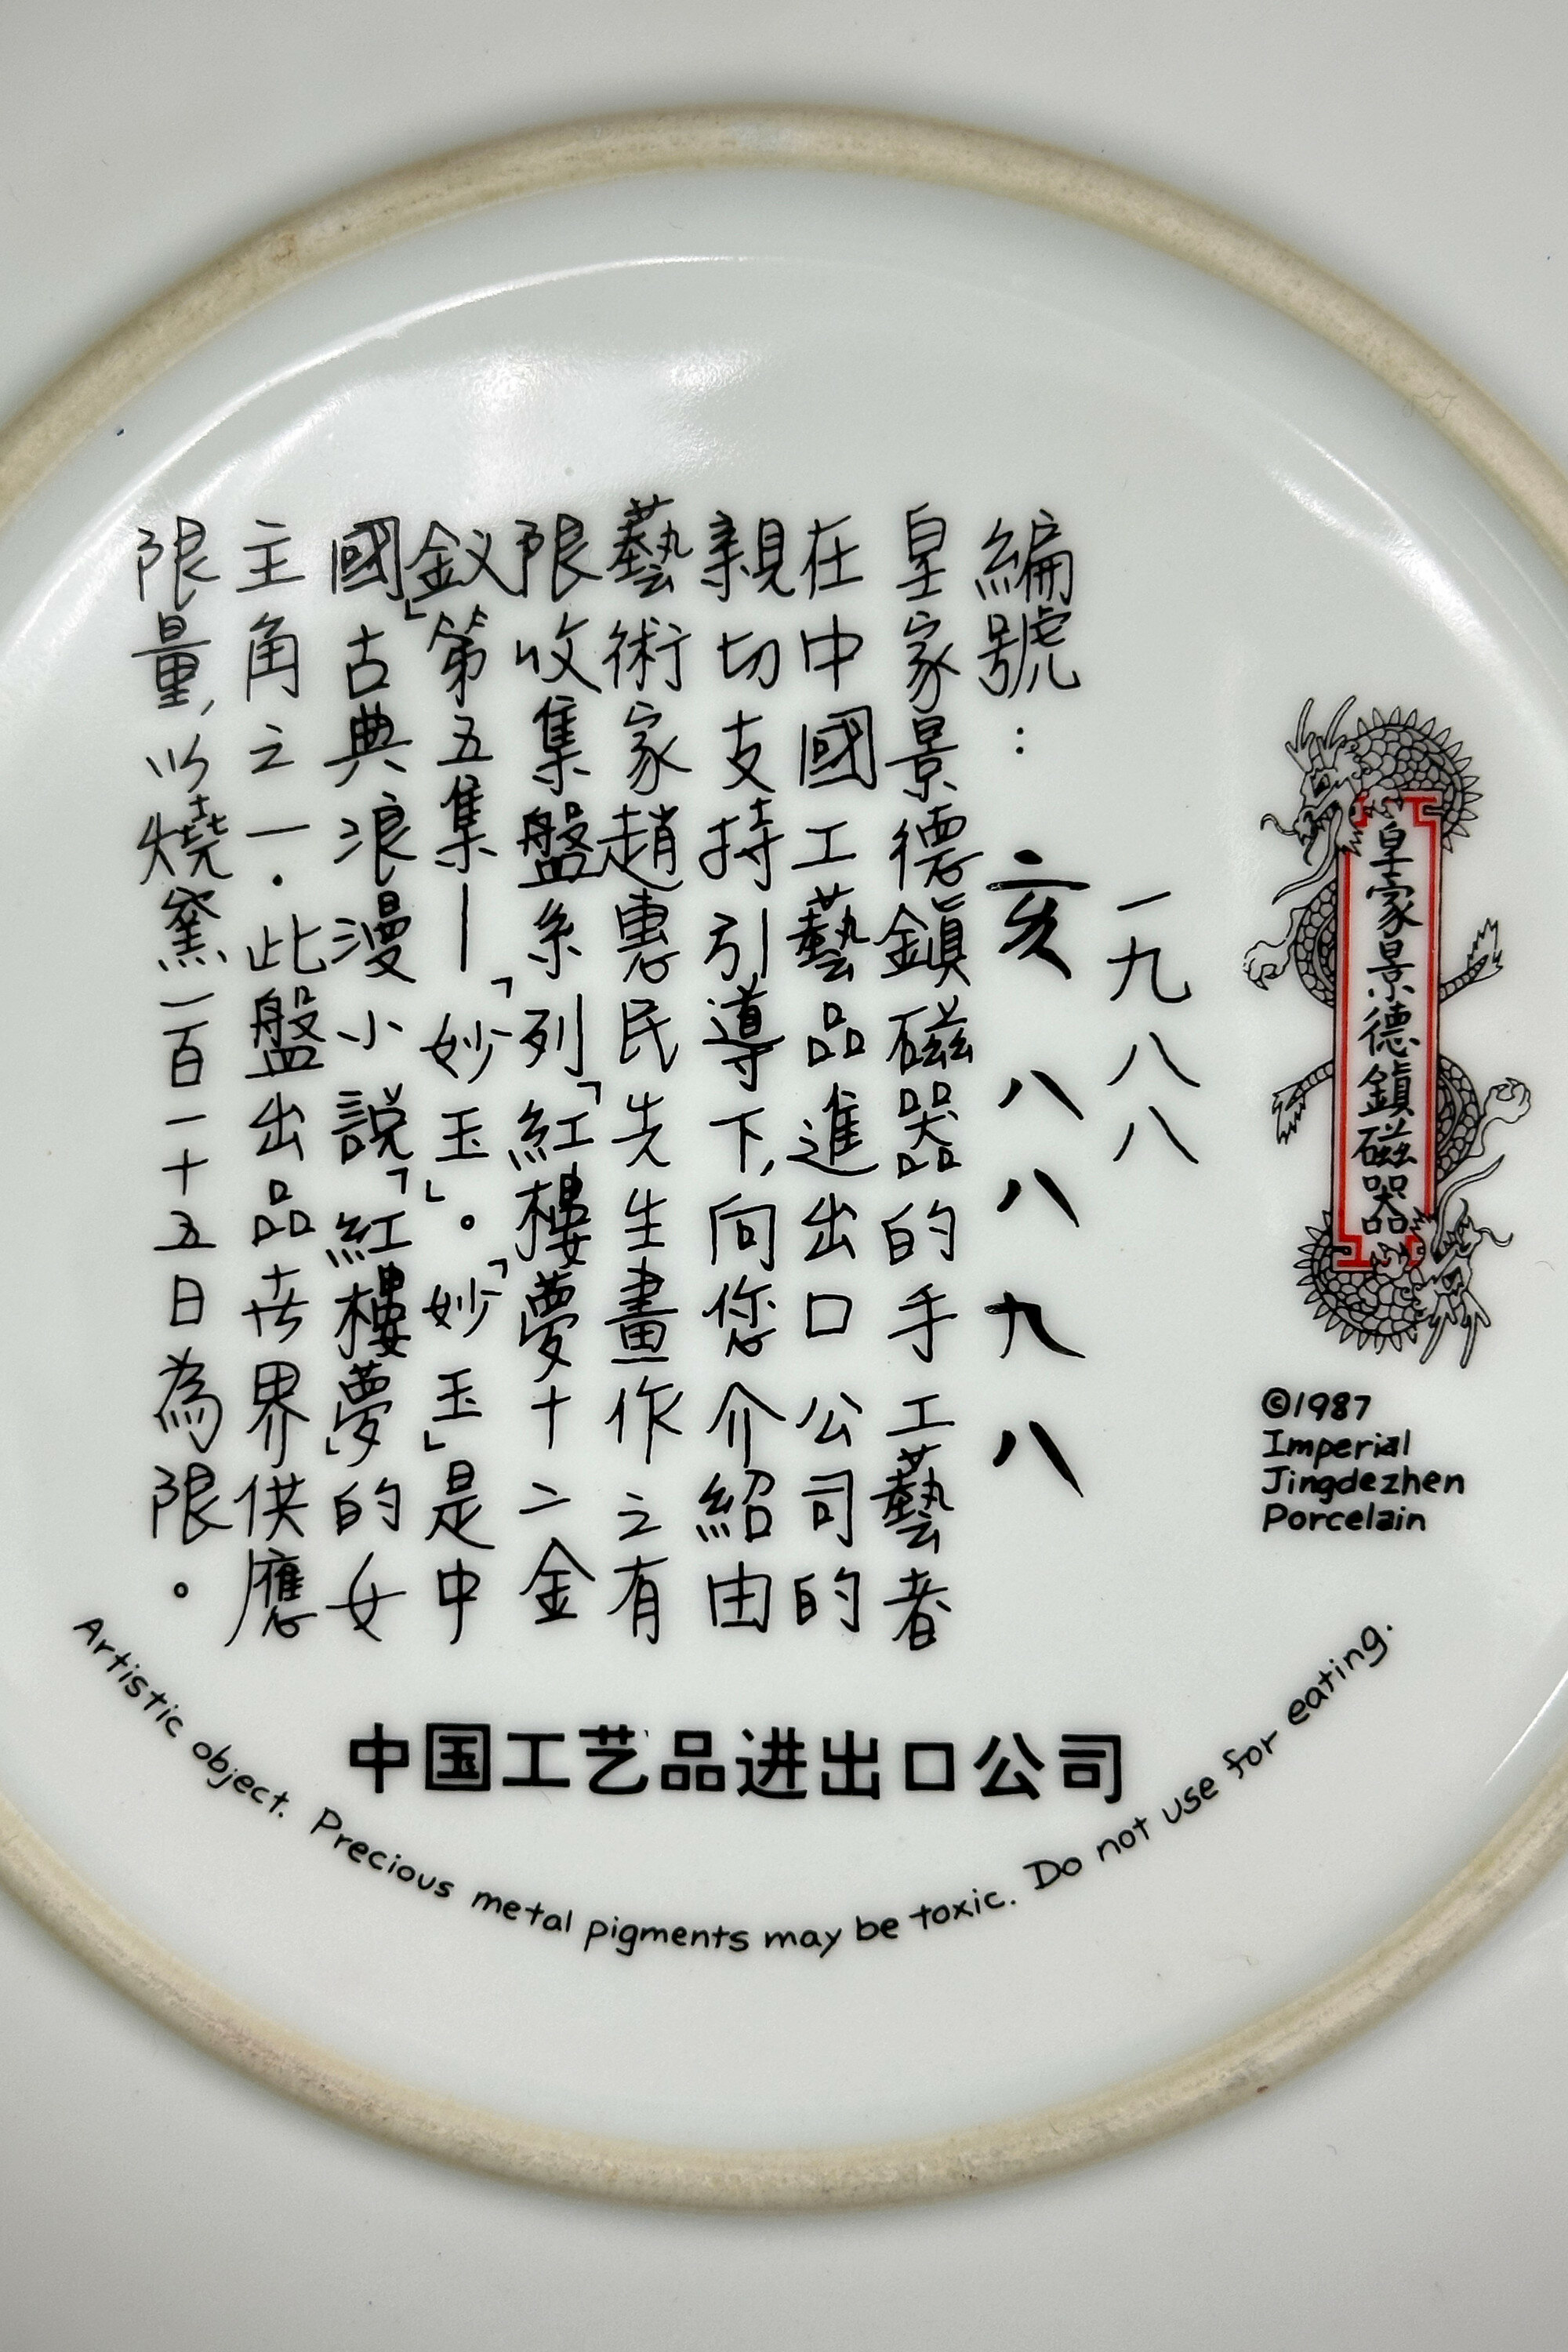 皇家景德鎮磁器
©1987
Imperial
Jingdezhen
Porcelain
一九八八
編號：亥八八九八
皇家景德鎮磁器的手工藝者
在中國工藝品進出口公司的
親切支持引導下,向您介紹由
藝術家趙惠民先生畫作之有
限收集盤系列「紅樓夢十二金
釵」第五集—「妙玉」。「妙玉」是中
國古典浪漫小說「紅樓夢」的女
主角之一．此盤出品世界供應
限量,以燒窯一百一十五日為限。
中国工艺品进出口公司
Artistic object. Precious metal pigments may be toxic. Do not use for eating.